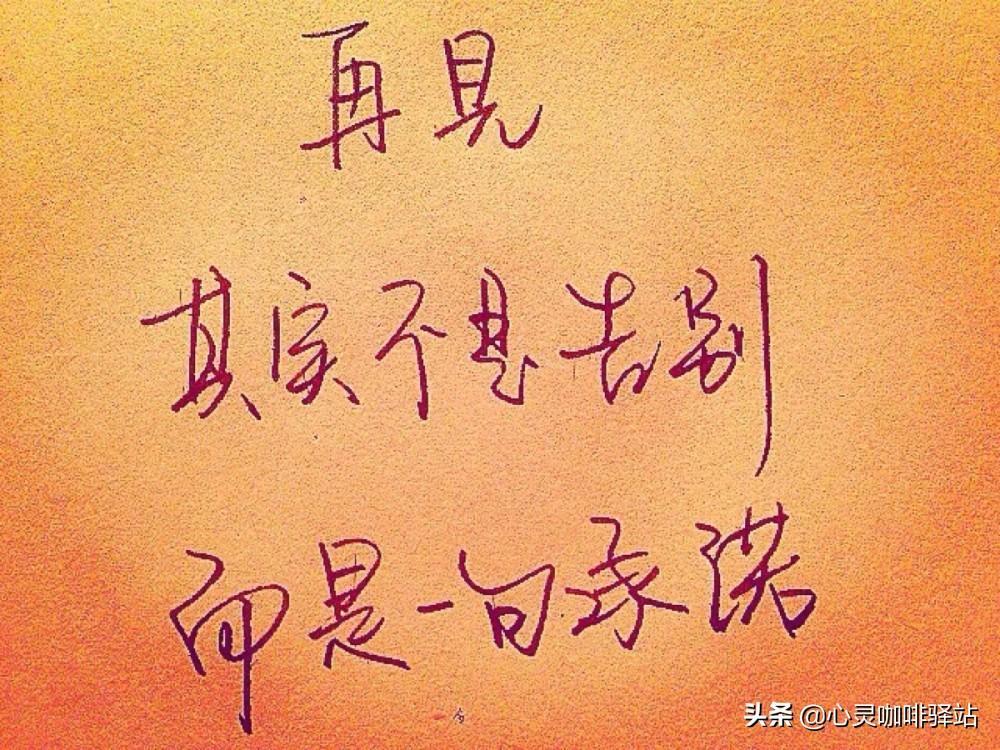 再见
其实不是告别
而是一句承诺
头条 @心灵咖啡驿站